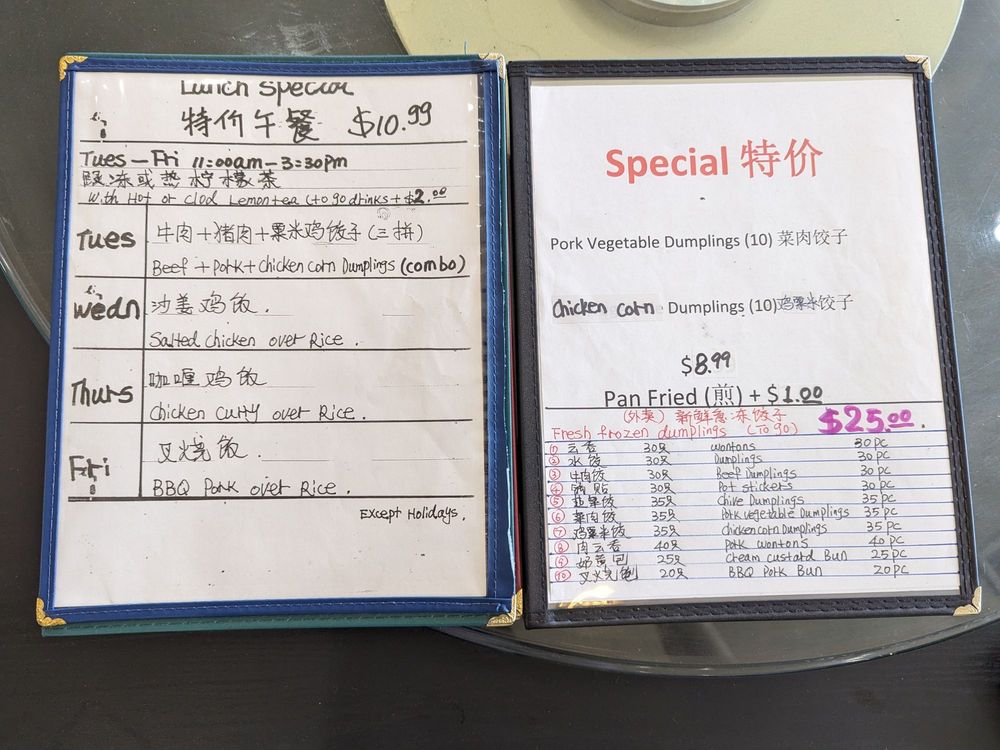 Lunch Special
特价午餐 $10.99
Tues - Fri 11:00am-3:30pm
跟冻或热柠檬茶
With Hot or Clod Lemontea (to go drinks + $2.00
Tues 牛肉+猪肉+粟米鸡饺子(三拼)
Beef + Pork + Chicken Corn Dumplings (combo)
Wedn 沙姜鸡饭.
Salted chicken over Rice.
Thurs 咖喱鸡饭
Chicken Curry over Rice.
Fri 叉烧饭.
BBQ Pork over Rice.
Except Holidays.
Special 特价
Pork Vegetable Dumplings (10) 菜肉饺子
Chicken corn Dumplings (10)鸡粟米饺子
$8.99
Pan Fried (煎) + $1.00
(外卖) 新鲜急冻饺子 $25.00.
Fresh frozen dumplings (TO GO)
① 云吞 30只 wontons 30 pc
② 水饺 30只 Dumplings 30 pc
③ 牛肉饺 30只 Beef Dumplings 30 pc
④ 锅贴 30只 Pot stickers 30 pc
⑤ 韭菜饺 35只 Chive Dumplings 35 pc
⑥ 菜肉饺 35只 Pork vegetable Dumplings 35 pc
⑦ 鸡粟米饺 35只 chicken corn Dumplings 35 pc
⑧ 肉云吞 40只 Pork wontons 40 pc
⑨ 奶黄包 25只 Cream custard Bun 25 pc
⑩ 叉烧包 20只 BBQ Pork Bun 20 pc